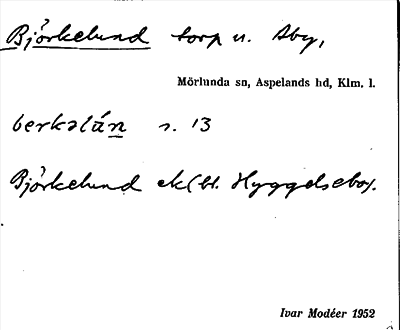 Björkelund torp u. Åby,
Mörlunda sn, Aspelands hd, Klm. l.
berkəlán s. 13
Björkelund ek(bl. Hyggelsebo).
Ivar Modéer 1952